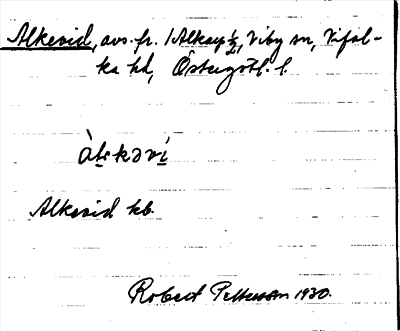 Alkevid, avs. fr. 1 Alkarp ½, Viby sn, Vifol-
ka hd, Östergötl. l.
àlkəvi
Alkevid kb.
Robert Pettersson 1930.